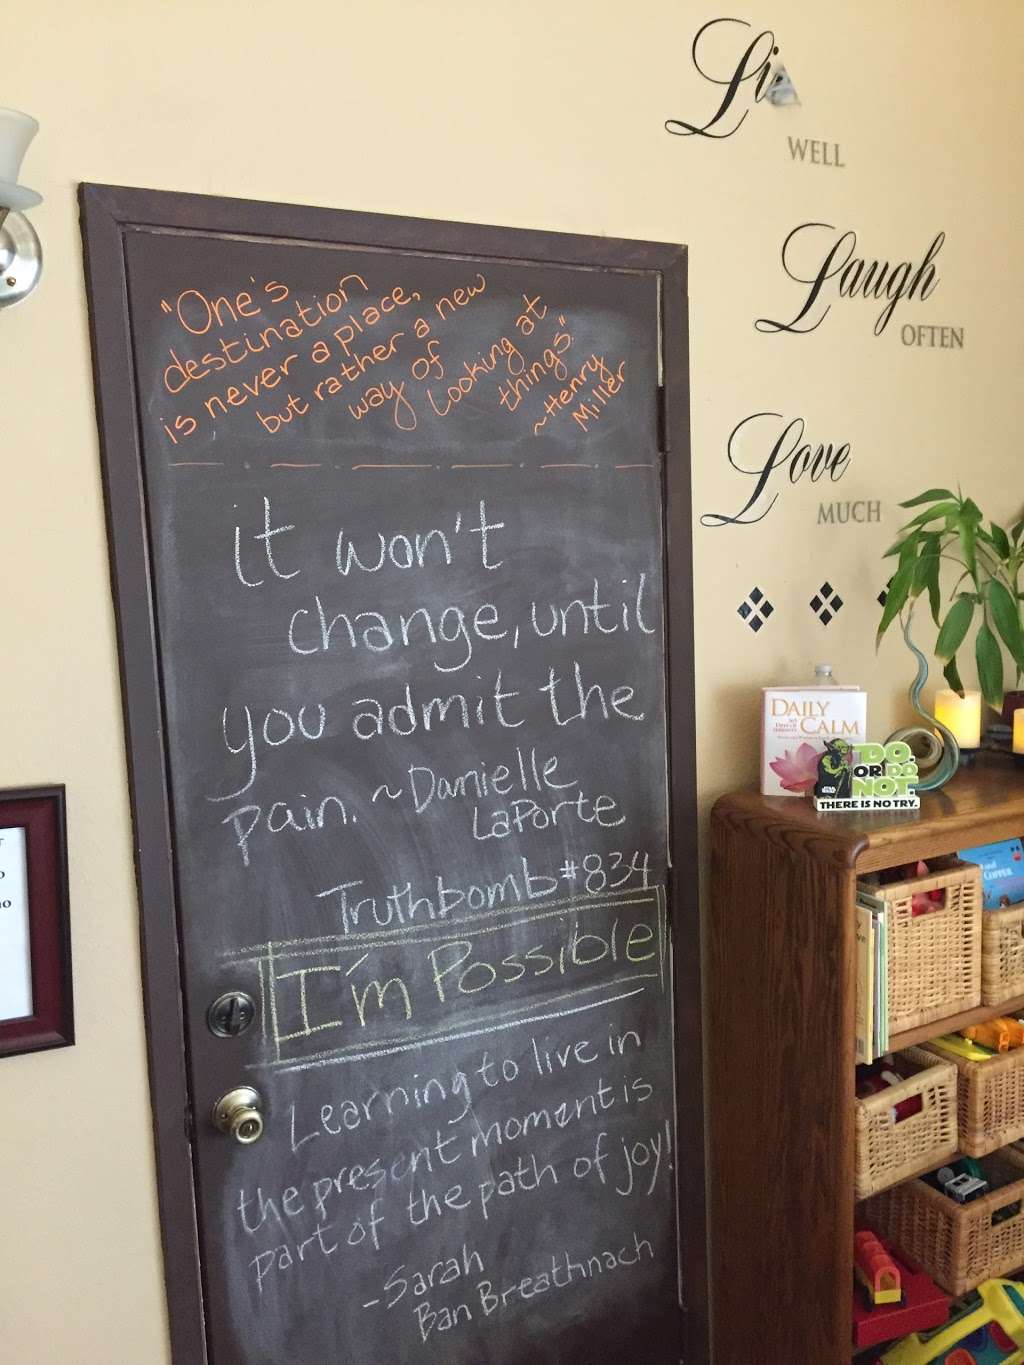 "One's
destination
is never a place,
but rather a new
way of
looking at
things."
~Henry
Miller
it won't
change, until
you admit the
pain. ~Danielle
LaPorte
Truthbomb #834
I'm Possible
Learning to live in
the present moment is
part of the path of joy!
-Sarah
Ban Breathnach
Li
WELL
Laugh
OFTEN
Love
MUCH
DAILY
CALM
DO.
OR DO
NOT.
THERE IS NO TRY.
COPPER